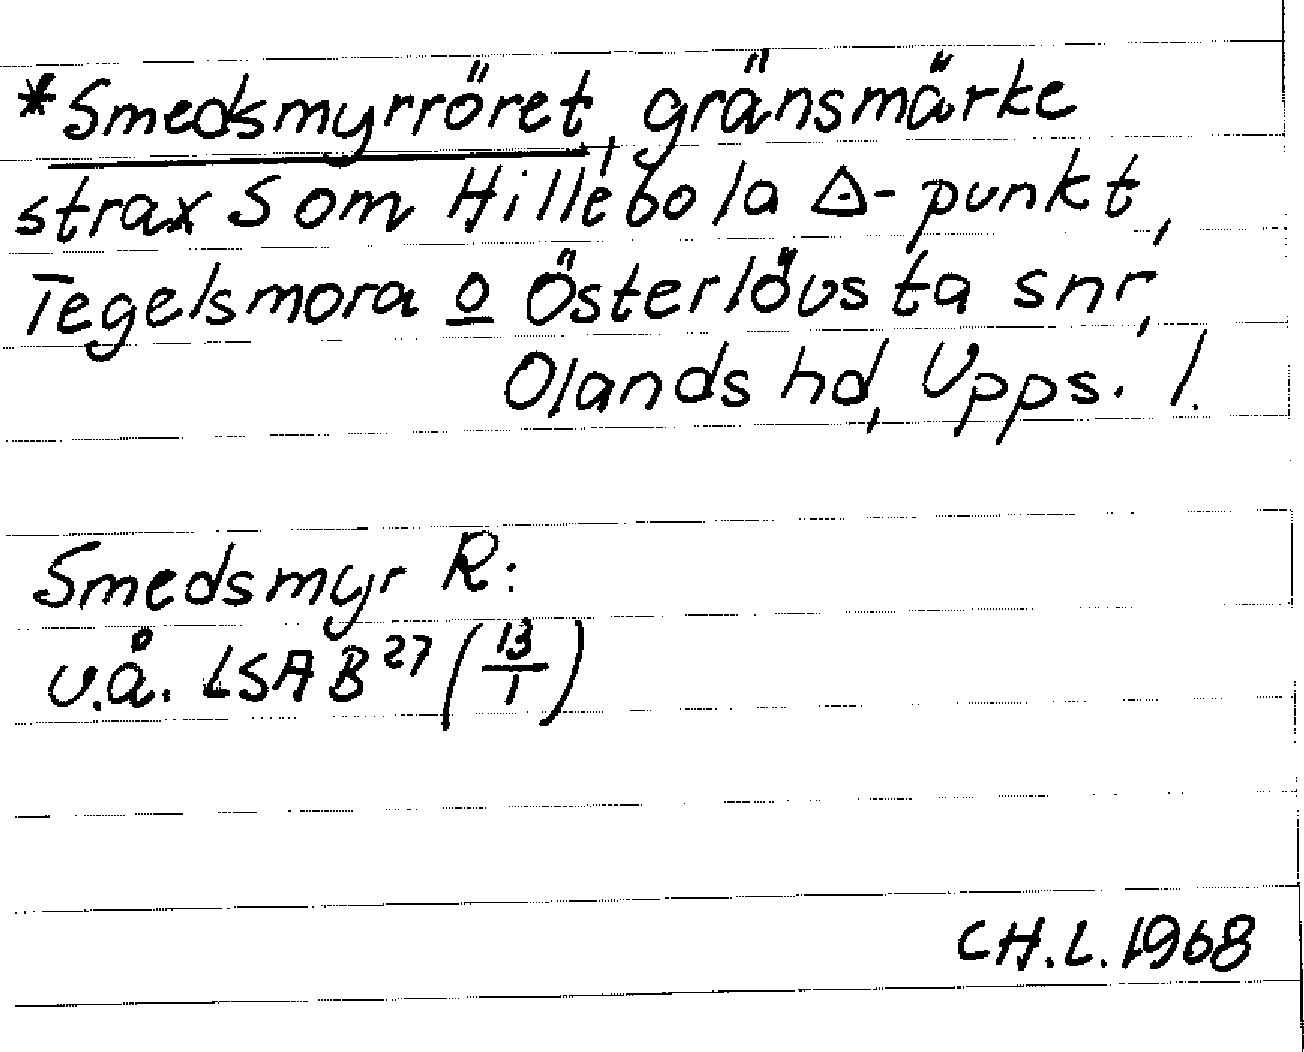 *Smedsmyrröret, gränsmärke
strax S om Hillebola △-punkt,
Tegelsmora o Österlövsta snr,
Olands hd, Upps. l.
Smedsmyr R:
u.å. LSA B²⁷ (13/1)
CH.L. 1968